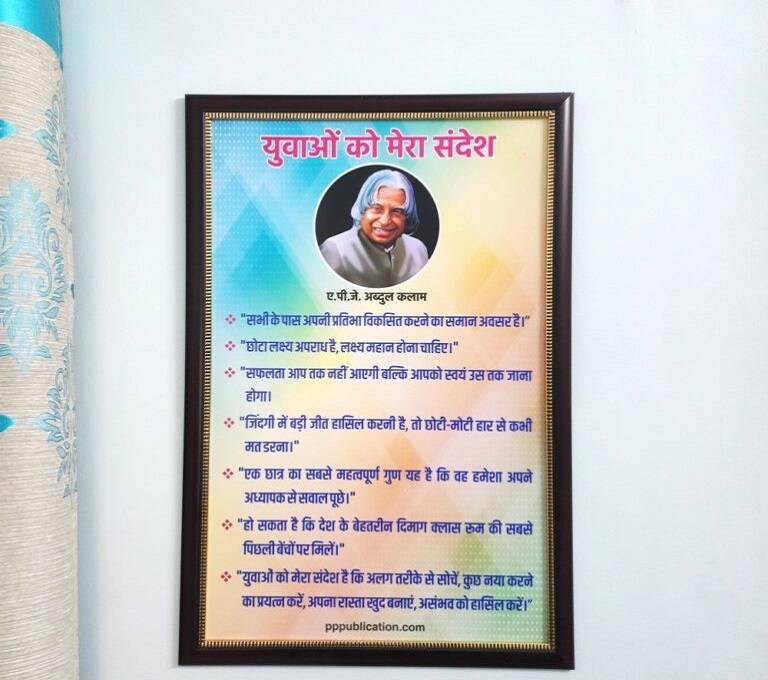 युवाओं को मेरा संदेश
ए.पी.जे. अब्दुल कलाम
❖ "सभी के पास अपनी प्रतिभा विकसित करने का समान अवसर है।"
❖ "छोटा लक्ष्य अपराध है, लक्ष्य महान होना चाहिए।"
❖ "सफलता आप तक नहीं आएगी बल्कि आपको स्वयं उस तक जाना
होगा।
❖ "जिंदगी में बड़ी जीत हासिल करनी है, तो छोटी-मोटी हार से कभी
मत डरना।"
❖ "एक छात्र का सबसे महत्वपूर्ण गुण यह है कि वह हमेशा अपने
अध्यापक से सवाल पूछे।"
❖ "हो सकता है कि देश के बेहतरीन दिमाग क्लास रूम की सबसे
पिछली बेंचों पर मिलें।"
❖ "युवाओं को मेरा संदेश है कि अलग तरीके से सोचें, कुछ नया करने
का प्रयत्न करें, अपना रास्ता खुद बनाएं, असंभव को हासिल करें।"
pppublication.com